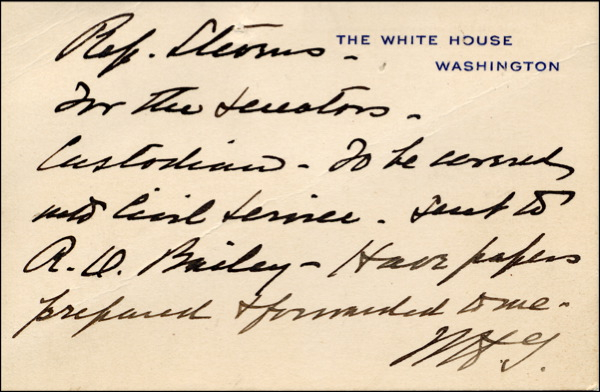 Rep. Stearns -
THE WHITE HOUSE
WASHINGTON
For the senators -
Custodian - To be covered
into Civil Service - sent to
R. O. Bailey - Have papers
prepared & forwarded to me -
WHT